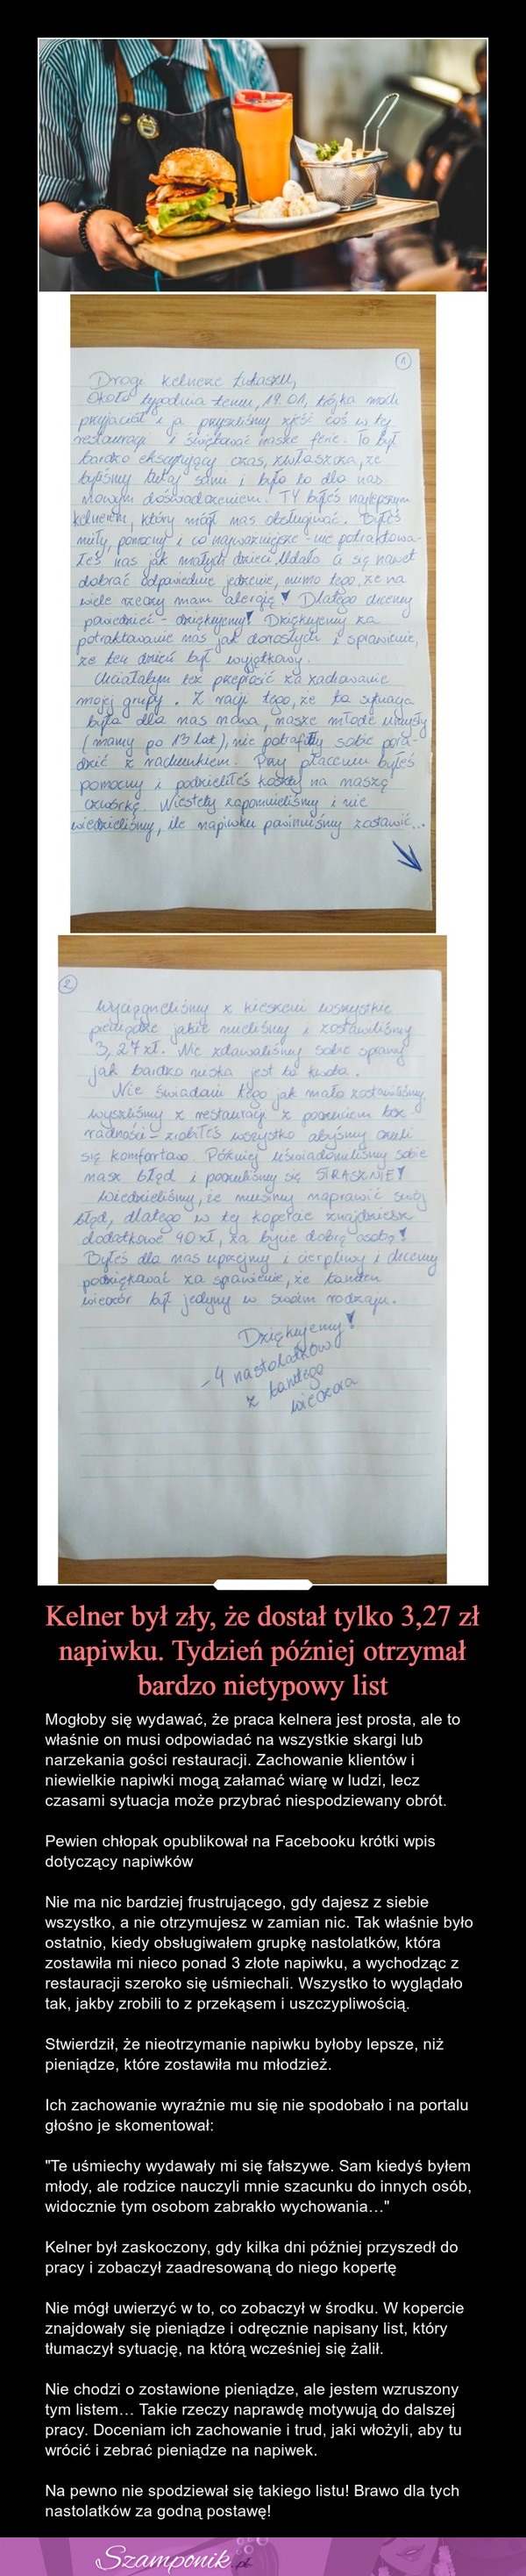 1
Drogi Kelnerze Łukaszu,
Około tygodnia temu, 19.01, trójka moich
przyjaciół i ja przyszliśmy zjeść coś w tej
restauracji i świętować nasze ferie. To był
bardzo ekscytujący czas, zwłaszcza, że
byliśmy tutaj sami i było to dla nas
nowym doświadczeniem! TY byłeś najlepszym
kelnerem, który mógł nas obsługiwać. Byłeś
miły, pomocny i co najważniejsze - nie potraktowa-
łeś nas jak małych dzieci. Udało Ci się nawet
dobrać odpowiednie jedzenie, mimo tego, że na
wiele rzeczy mam alergię! Dlatego chcemy
powiedzieć - dziękujemy! Dziękujemy za
potraktowanie nas jak dorosłych i sprawienie,
że ten dzień był wyjątkowy.
Chciałabym też przeprosić za zachowanie
mojej grupy. Z racji tego, że ta sytuacja
była dla nas nowa, nasze młode umysły
(mamy po 13 lat), nie potrafiły sobie pora-
dzić z rachunkiem. Przy płaceniu byłeś
pomocny i podzieliłeś koszty na naszą
czwórkę. Niestety zapomnieliśmy i nie
wiedzieliśmy, ile napiwku powinniśmy zostawić...
2
Wyciągnęliśmy z kieszeni wszystkie
pieniądze jakie mieliśmy i zostawiliśmy
3,27 zł. Nie zdawaliśmy sobie sprawy
jak bardzo niska jest to kwota.
Nie świadomi tego jak mało zostawiliśmy
wyszliśmy z restauracji z poczuciem bez
radności - zrobiłeś wszystko abyśmy czuli
się komfortowo. Później uświadomiliśmy sobie
nasz błąd i poczuliśmy się STRASZNIE!
Wiedzieliśmy, że musimy naprawić swój
błąd, dlatego w tej kopercie znajdziesz
dodatkowe 40 zł, za bycie dobrą osobą!
Byłeś dla nas uprzejmy i cierpliwy i chcemy
podziękować za sprawienie, że tamten
wieczór był jedyny w swoim rodzaju.
Dziękujemy!
- 4 nastolatków
z tamtego
wieczora
Kelner był zły, że dostał tylko 3,27 zł
napiwku. Tydzień później otrzymał
bardzo nietypowy list
Mogłoby się wydawać, że praca kelnera jest prosta, ale to
właśnie on musi odpowiadać na wszystkie skargi lub
narzekania gości restauracji. Zachowanie klientów i
niewielkie napiwki mogą załamać wiarę w ludzi, lecz
czasami sytuacja może przybrać niespodziewany obrót.
Pewien chłopak opublikował na Facebooku krótki wpis
dotyczący napiwków
Nie ma nic bardziej frustrującego, gdy dajesz z siebie
wszystko, a nie otrzymujesz w zamian nic. Tak właśnie było
ostatnio, kiedy obsługiwałem grupkę nastolatków, która
zostawiła mi nieco ponad 3 złote napiwku, a wychodząc z
restauracji szeroko się uśmiechali. Wszystko to wyglądało
tak, jakby zrobili to z przekąsem i uszczypliwością.
Stwierdził, że nieotrzymanie napiwku byłoby lepsze, niż
pieniądze, które zostawiła mu młodzież.
Ich zachowanie wyraźnie mu się nie spodobało i na portalu
głośno je skomentował:
"Te uśmiechy wydawały mi się fałszywe. Sam kiedyś byłem
młody, ale rodzice nauczyli mnie szacunku do innych osób,
widocznie tym osobom zabrakło wychowania…"
Kelner był zaskoczony, gdy kilka dni później przyszedł do
pracy i zobaczył zaadresowaną do niego kopertę
Nie mógł uwierzyć w to, co zobaczył w środku. W kopercie
znajdowały się pieniądze i odręcznie napisany list, który
tłumaczył sytuację, na którą wcześniej się żalił.
Nie chodzi o zostawione pieniądze, ale jestem wzruszony
tym listem… Takie rzeczy naprawdę motywują do dalszej
pracy. Doceniam ich zachowanie i trud, jaki włożyli, aby tu
wrócić i zebrać pieniądze na napiwek.
Na pewno nie spodziewał się takiego listu! Brawo dla tych
nastolatków za godną postawę!
Szamponik.pl